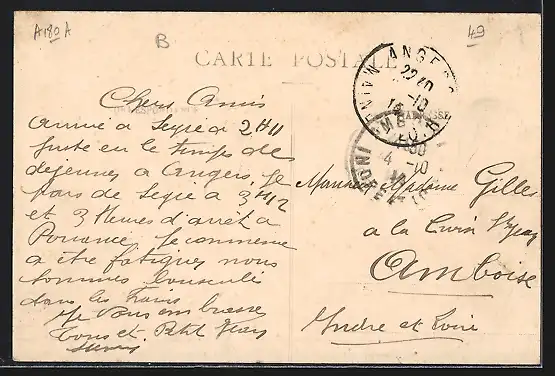 A180A
B
49
CARTE POSTALE
Chers Amis
Arrivé a Segré a 2H11
juste eu le temps de
dejeuner a Angers, Je
pars de Segré a 3H12
et 3 Heures d'arrêt a
Pouancé. Je commence
a être fatiguer nous
sommes bousculé
dans les trains
Je vous embrasse
Tous et Petit Jean
ANGERS
22 40
-10
14
AMBOISE
4 -10
INDRE
Monsieur Madame Gilles
a la Croix St Jean
Amboise
Indre et Loire